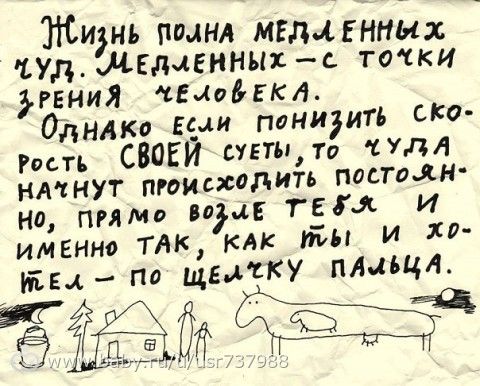 Жизнь полна медленных
чуд. Медленных – с точки
зрения человека.
Однако если понизить ско-
рость СВОЕЙ суеты, то чуда
начнут происходить постоян-
но, прямо возле тебя и
именно так, как ты и хо-
тел – по щелчку пальца.
www.baby.ru/u/usr737988